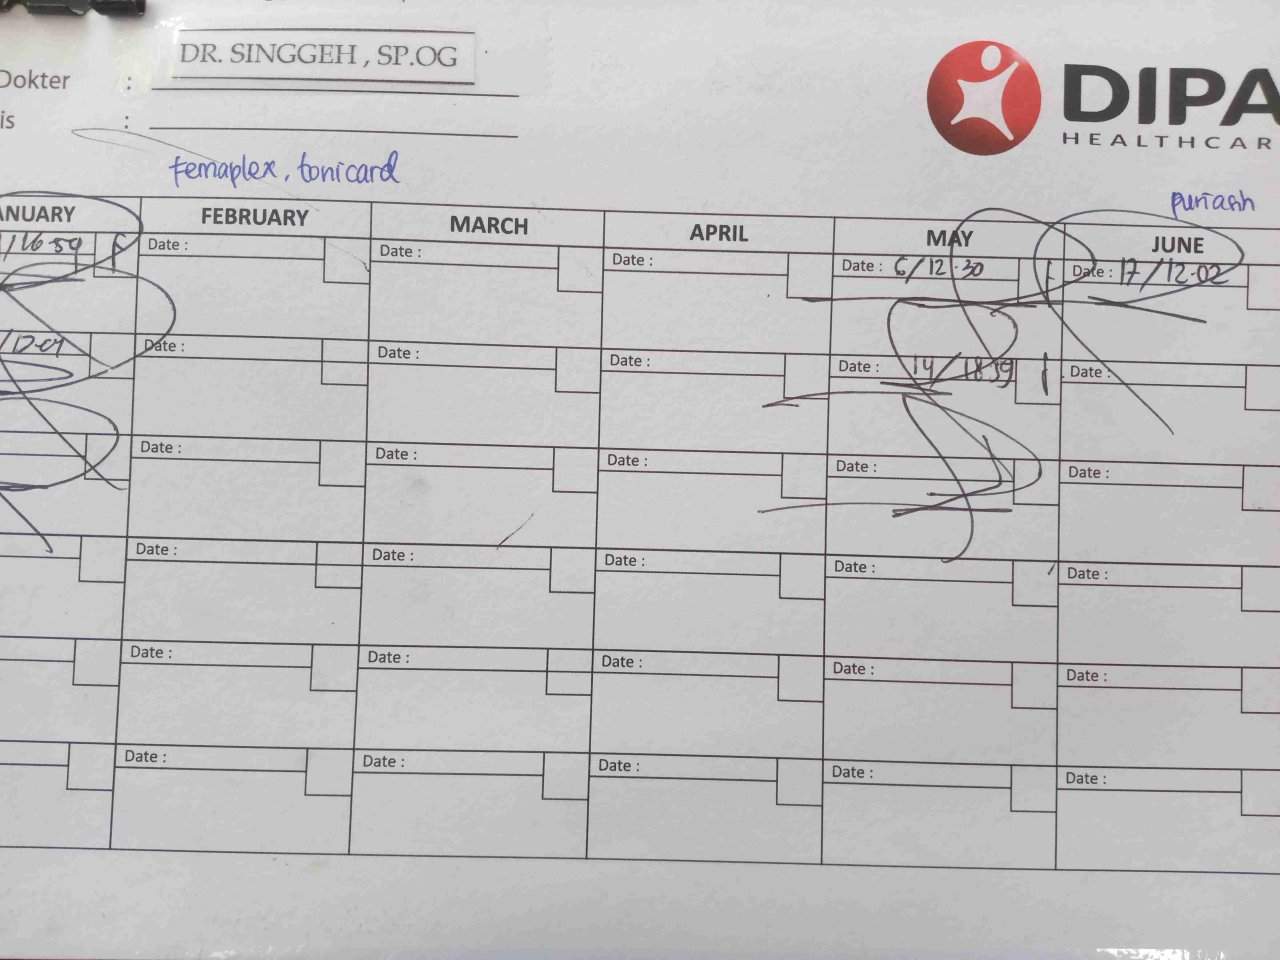 DR. SINGGEH , SP.OG
Dokter :
is :
DIPA
HEALTHCAR
femaplex, tonicard
ANUARY FEBRUARY MARCH APRIL MAY JUNE
/16.59 Date : Date : Date : Date : 6/12.30 Date : 17/12.02
Date : Date : Date : Date : 14/18.59 Date :
Date : Date : Date : Date : Date :
Date : Date : Date : Date : Date :
Date : Date : Date : Date : Date :
Date : Date : Date : Date : Date :